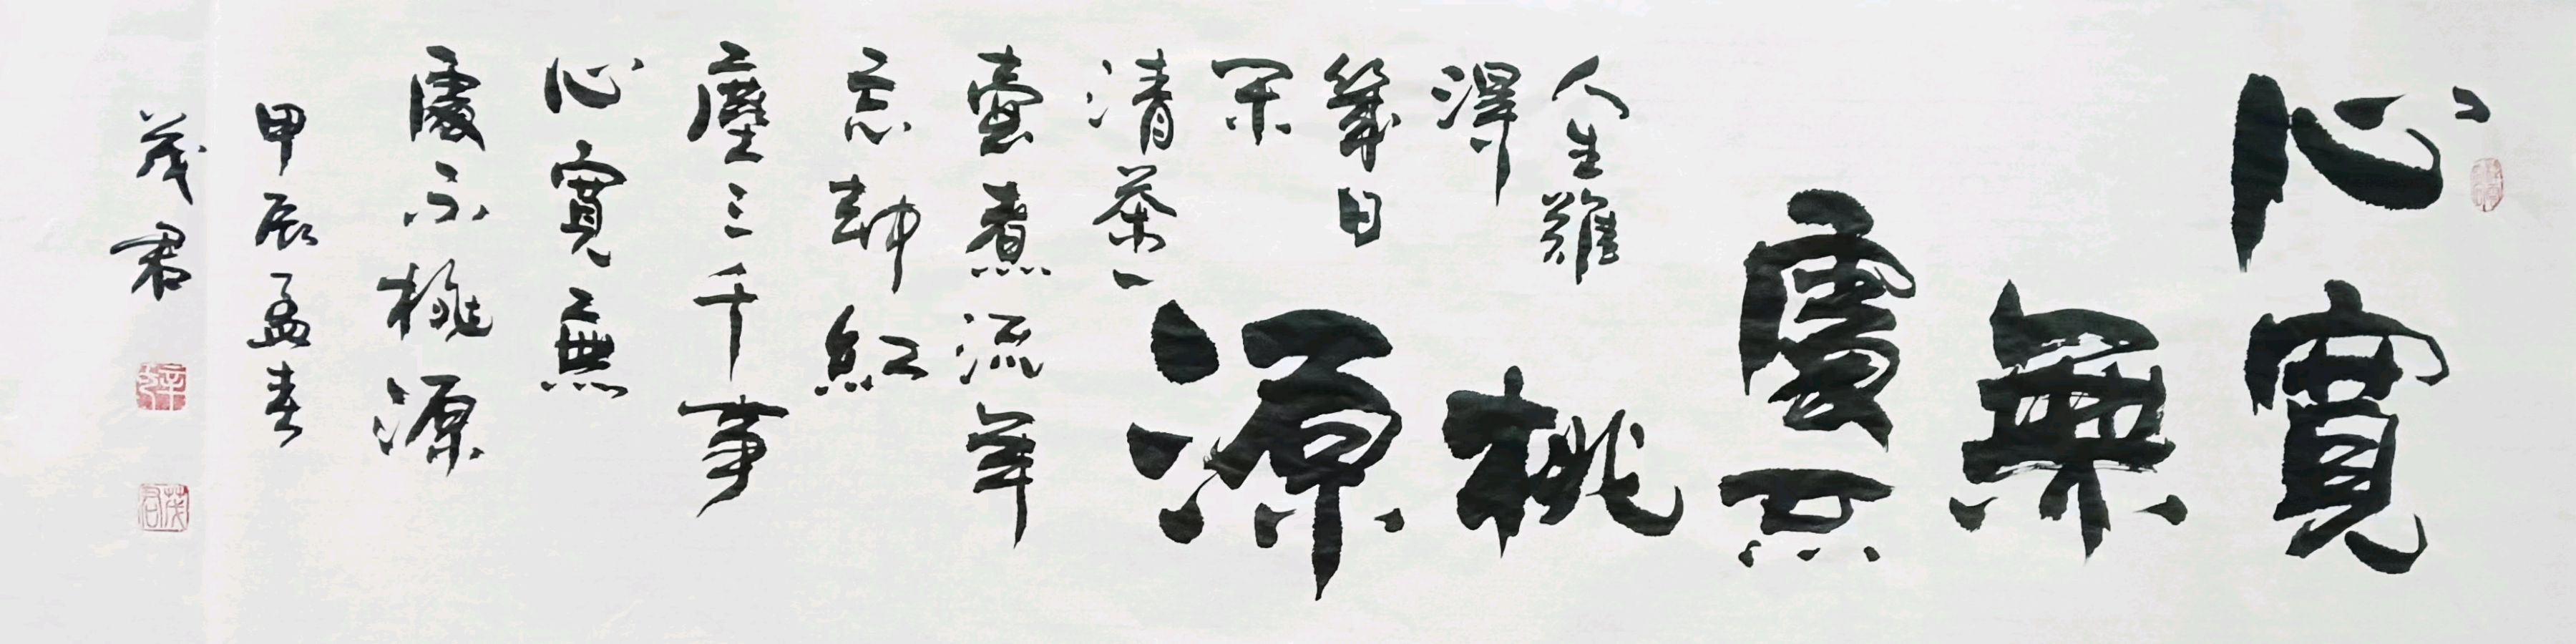 心寬
無
處不
桃
源
人生難
得
幾日
閑
清茶一
壺煮流年
忘却紅
塵三千事
心寬無
處不桃源
甲辰孟春
茂君
茂君